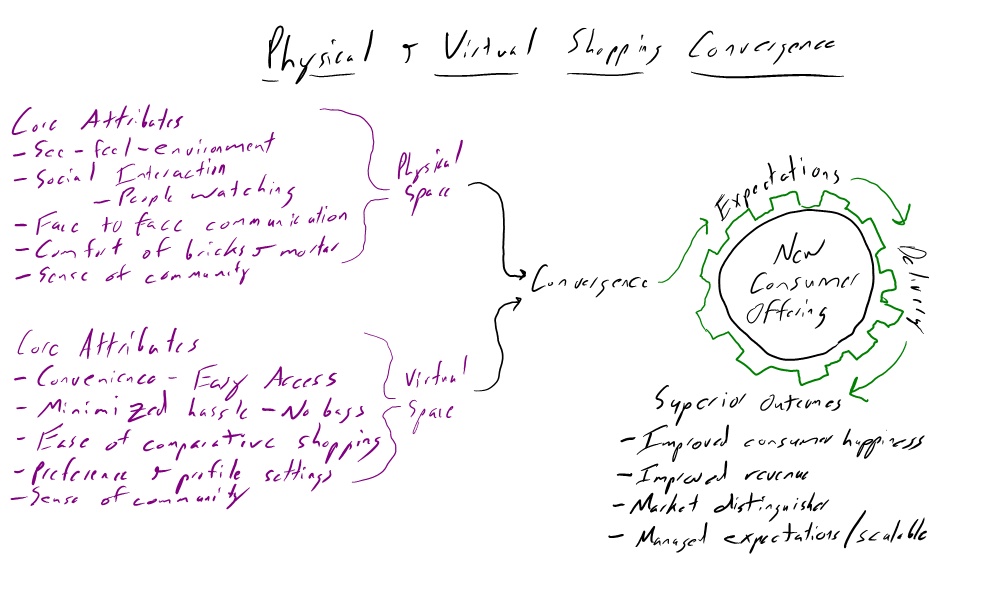 Physical & Virtual Shopping Convergence
Core Attributes
- See - feel - environment
- Social Interaction
- People watching
- Face to face communication
- Comfort of bricks & mortar
- Sense of community
Physical
Space
Core Attributes
- Convenience - Easy Access
- Minimized hassle - No bags
- Ease of comparative shopping
- Preference & profile settings
- Sense of community
Virtual
Space
Convergence
Expectations
Delivery
New
Consumer
Offering
Superior Outcomes
- Improved consumer happiness
- Improved revenue
- Market distinguisher
- Managed expectations/scalable